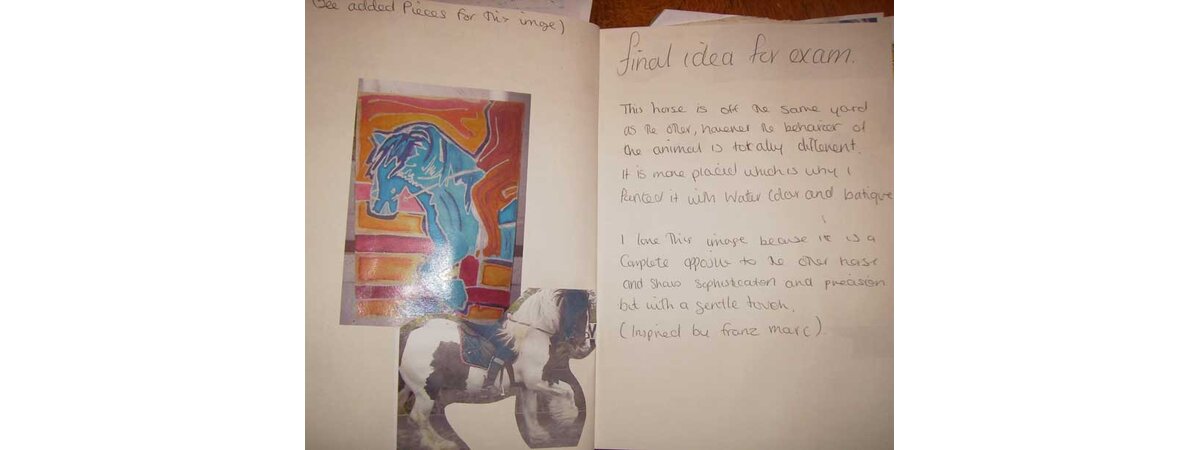 (See added Pieces for this image)
final idea for exam.
This horse is off the same yard
as the other, however the behavior of
the animal is totally different.
It is more placid which is why I
Painted it with Water Colour and batique
I love This image because it is a
Complete opposite to the other horse
and shows sophistication and precision
but with a gentle touch.
(Inspired by franz marc)